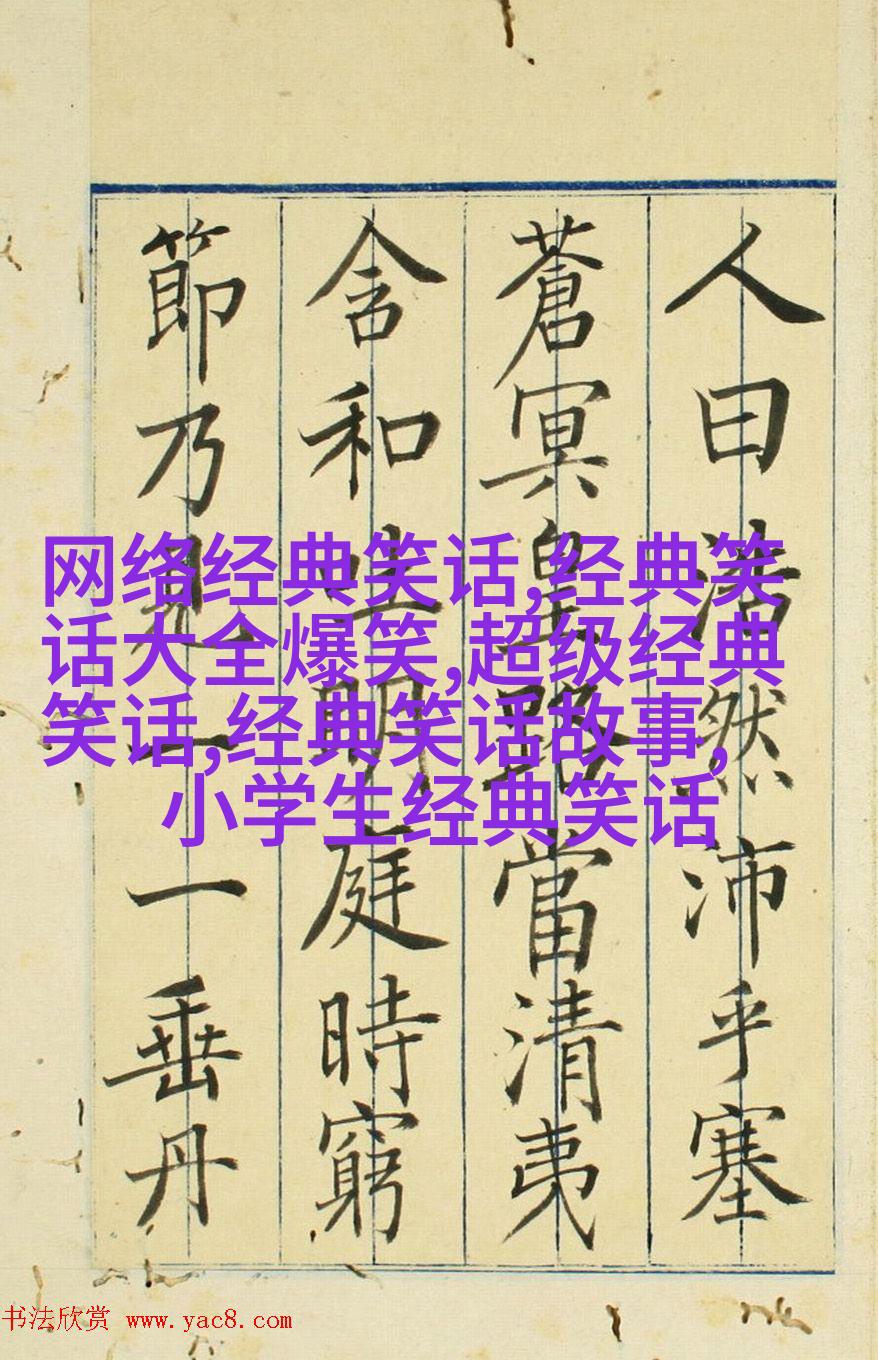 人曰浩然沛乎塞
蒼冥皇路當清夷
含和吐明庭時窮
節乃見一一垂丹
网络经典笑话,经典笑
话大全爆笑,超级经典
笑话,经典笑话故事,
小学生经典笑话
书法欣赏 www.yac8.com